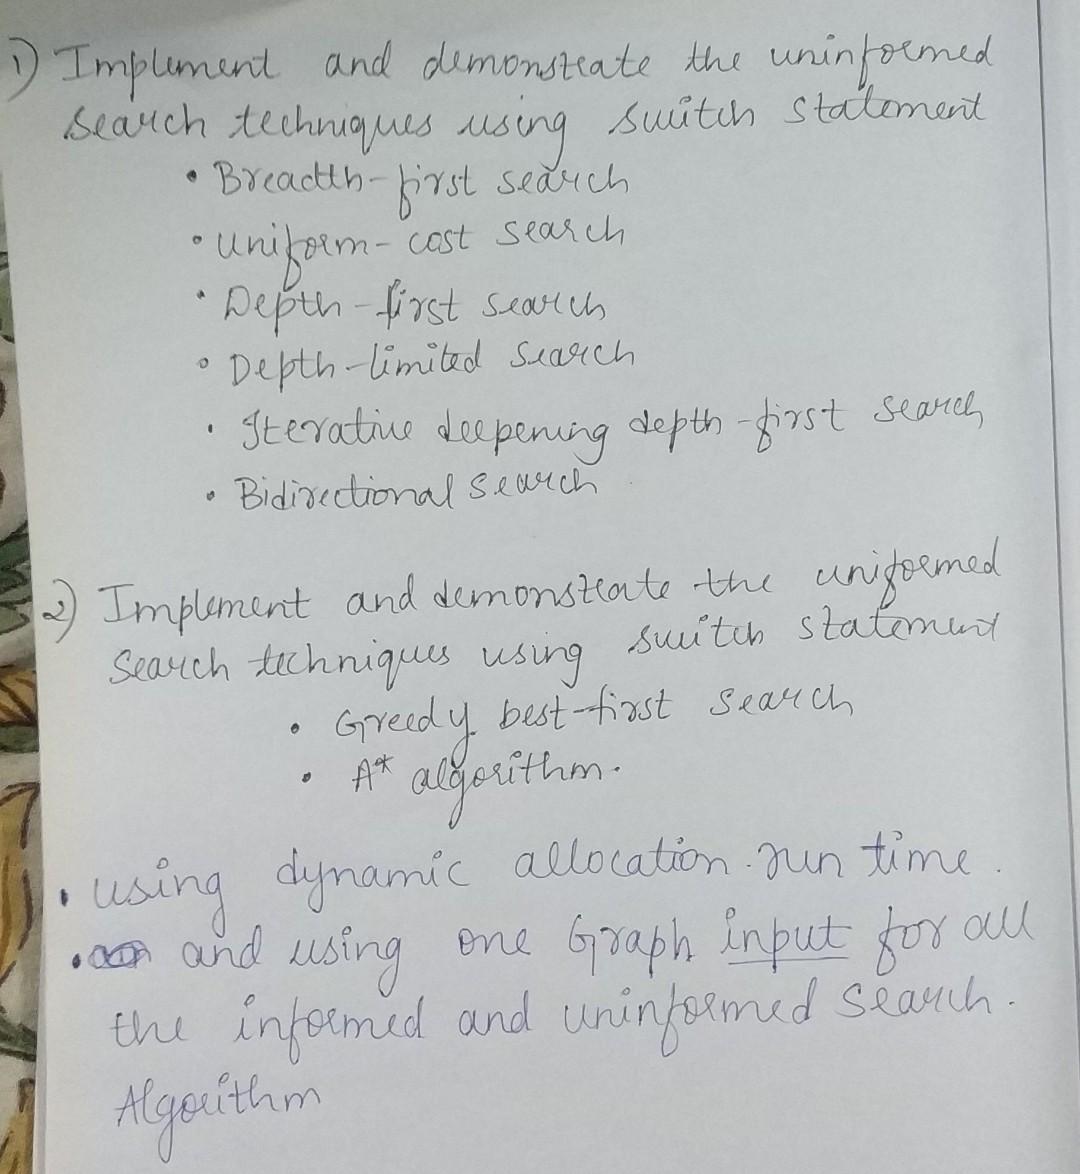 1) Implement and demonstrate the uninformed
search techniques using switch statement
• Breadth-first search
• uniform-cost search
• Depth-first search
• Depth-limited search
• Iterative deepening depth-first search
• Bidirectional search
2) Implement and demonstrate the uniformed
search techniques using switch statement
• Greedy best-first search
• A* algorithm.
• using dynamic allocation. run time.
• and using one Graph input for all
the informed and uninformed search.
Algorithm